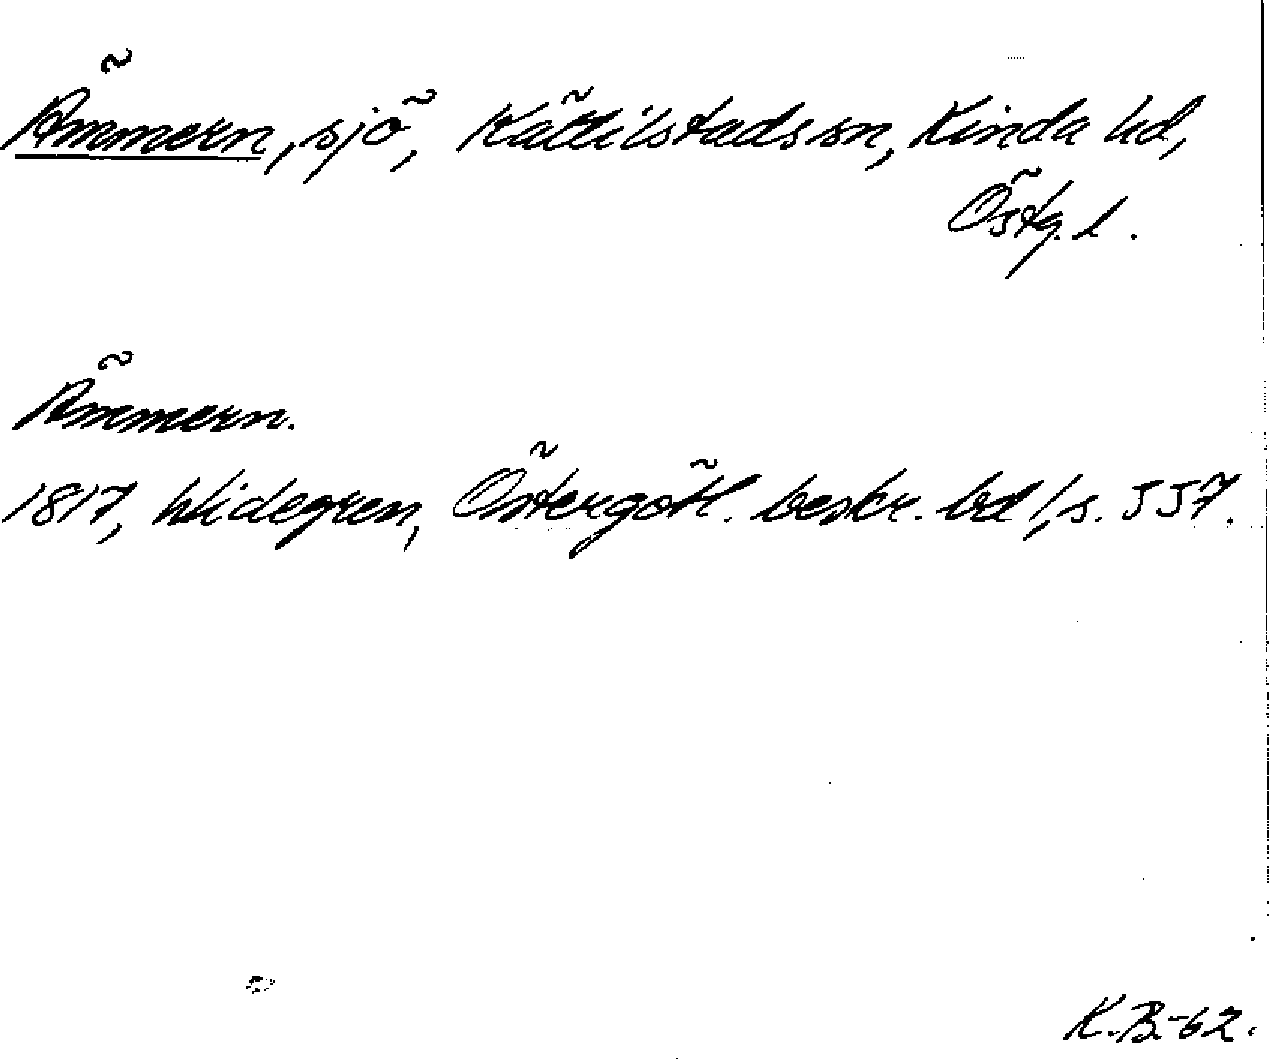 Ämmern, sjö, Kättilstads sn, Kinda hd,
Östg. l.
Ämmern.
1817, Widegren, Östergötl. beskr. bd 1, s. 557.
K.B.-62.